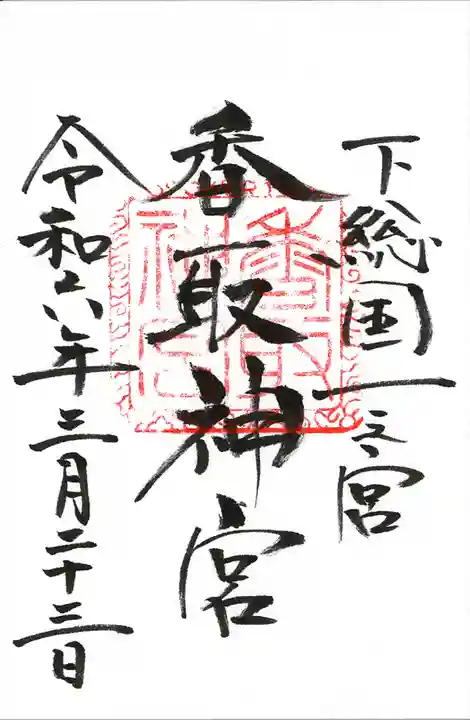 下総国一之宮
香取神宮
令和六年三月二十三日
香取神宮